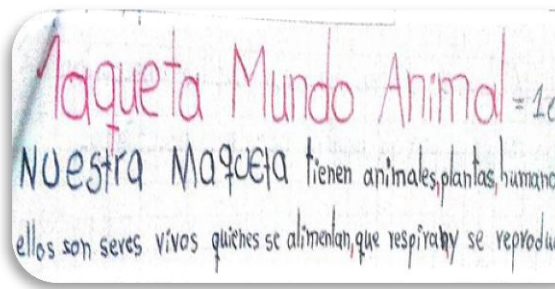 Maqueta Mundo Animal
Nuestra Maqueta tienen animales, plantas, humano
ellos son seres vivos quienes se alimentan, que respiran y se reprodu